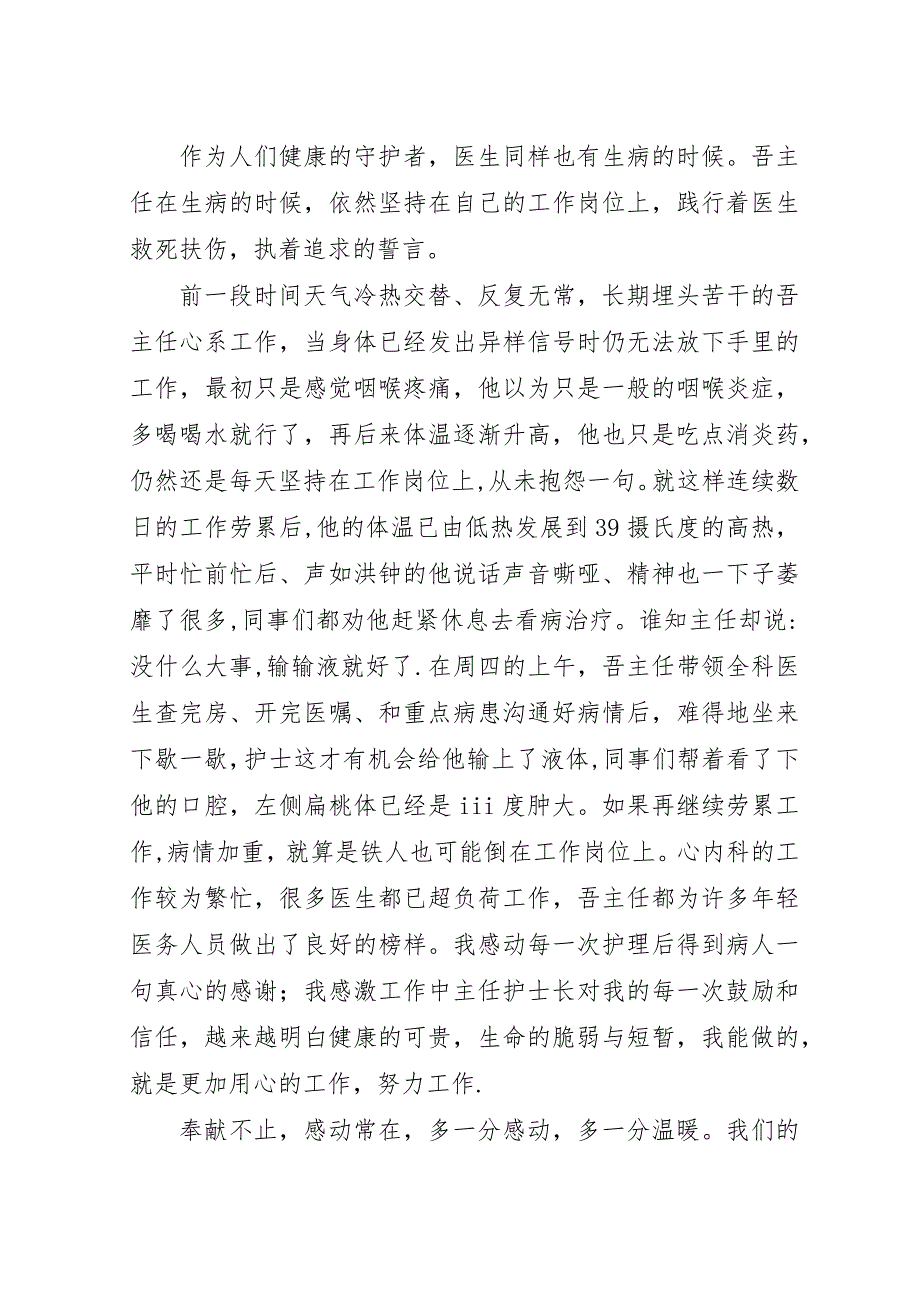 作为人们健康的守护者，医生同样也有生病的时候。吾主
任在生病的时候，依然坚持在自己的工作岗位上，践行着医生
救死扶伤，执着追求的誓言。
前一段时间天气冷热交替、反复无常，长期埋头苦干的吾
主任心系工作，当身体已经发出异样信号时仍无法放下手里的
工作，最初只是感觉咽喉疼痛，他以为只是一般的咽喉炎症，
多喝喝水就行了，再后来体温逐渐升高，他也只是吃点消炎药，
仍然还是每天坚持在工作岗位上,从未抱怨一句。就这样连续数
日的工作劳累后,他的体温已由低热发展到 39 摄氏度的高热，
平时忙前忙后、声如洪钟的他说话声音嘶哑、精神也一下子萎
靡了很多,同事们都劝他赶紧休息去看病治疗。谁知主任却说:
没什么大事,输输液就好了.在周四的上午，吾主任带领全科医
生查完房、开完医嘱、和重点病患沟通好病情后，难得地坐来
下歇一歇，护士这才有机会给他输上了液体,同事们帮着看了下
他的口腔，左侧扁桃体已经是 iii 度肿大。如果再继续劳累工
作,病情加重，就算是铁人也可能倒在工作岗位上。心内科的工
作较为繁忙，很多医生都已超负荷工作，吾主任都为许多年轻
医务人员做出了良好的榜样。我感动每一次护理后得到病人一
句真心的感谢；我感激工作中主任护士长对我的每一次鼓励和
信任，越来越明白健康的可贵，生命的脆弱与短暂，我能做的，
就是更加用心的工作，努力工作.
奉献不止，感动常在，多一分感动，多一分温暖。我们的